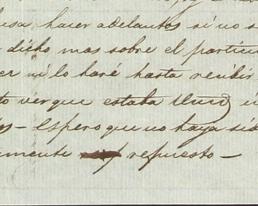 esa hacer adelantos si no s
- dicho mas sobre el particu
er ni lo haré hasta recibir
to ver que estaba
os - Espero que no haya sid
mente repuesto -